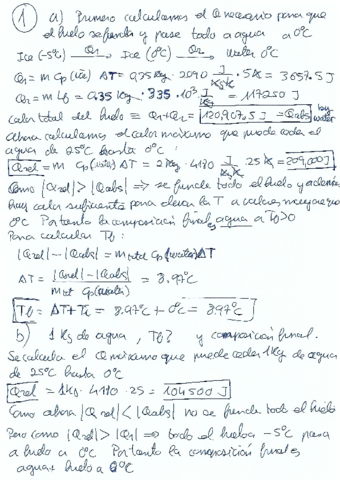 1 a) Primero calculamos el Q necesario para que
el hielo se funda y pase todo a agua a 0°C
Ice (-5°C) Q1→ Ice (0°C) Q2→ Water 0°C
Q1 = m Cp(ice) ΔT = 0,35 kg · 2090 J/kg·K · 5 K = 3657.5 J
Q2 = m Lf = 0.35 kg · 335·10³ J/kg = 117250 J
Calor total del hielo = Q1+Q2 = 120,907.5 J = Qabs
Ahora calculamos el calor máximo que puede ceder el
agua de 25°C hasta 0°C:
Qced = m Cp(water) ΔT = 2 kg · 4180 J/kg·K · 25 K = 209,000 J
Como |Qced| > |Qabs| ⇒ se funde todo el hielo y además
hay calor suficiente para elevar la T a valores mayores que
0°C. Por tanto la composición final es agua a Tf>0
Para calcular Tf:
|Qced| - |Qabs| = m total Cp(water) ΔT
ΔT = |Qced| - |Qabs| / m tot Cp(water) = 8.97°C
Tf = ΔT + Ti = 8.97°C + 0°C = 8.97°C
b) 1 kg de agua, Tf? y composición final.
Se calcula el Q máximo que puede ceder 1 kg de agua
de 25°C hasta 0°C
Qced = 1 kg · 4180 · 25 = 104500 J
Como ahora |Qced| < |Qabs| no se funde todo el hielo
Pero como |Qced| > |Q1| ⇒ todo el hielo a -5°C pasa
a hielo a 0°C. Por tanto la composición final es
agua + hielo a 0°C